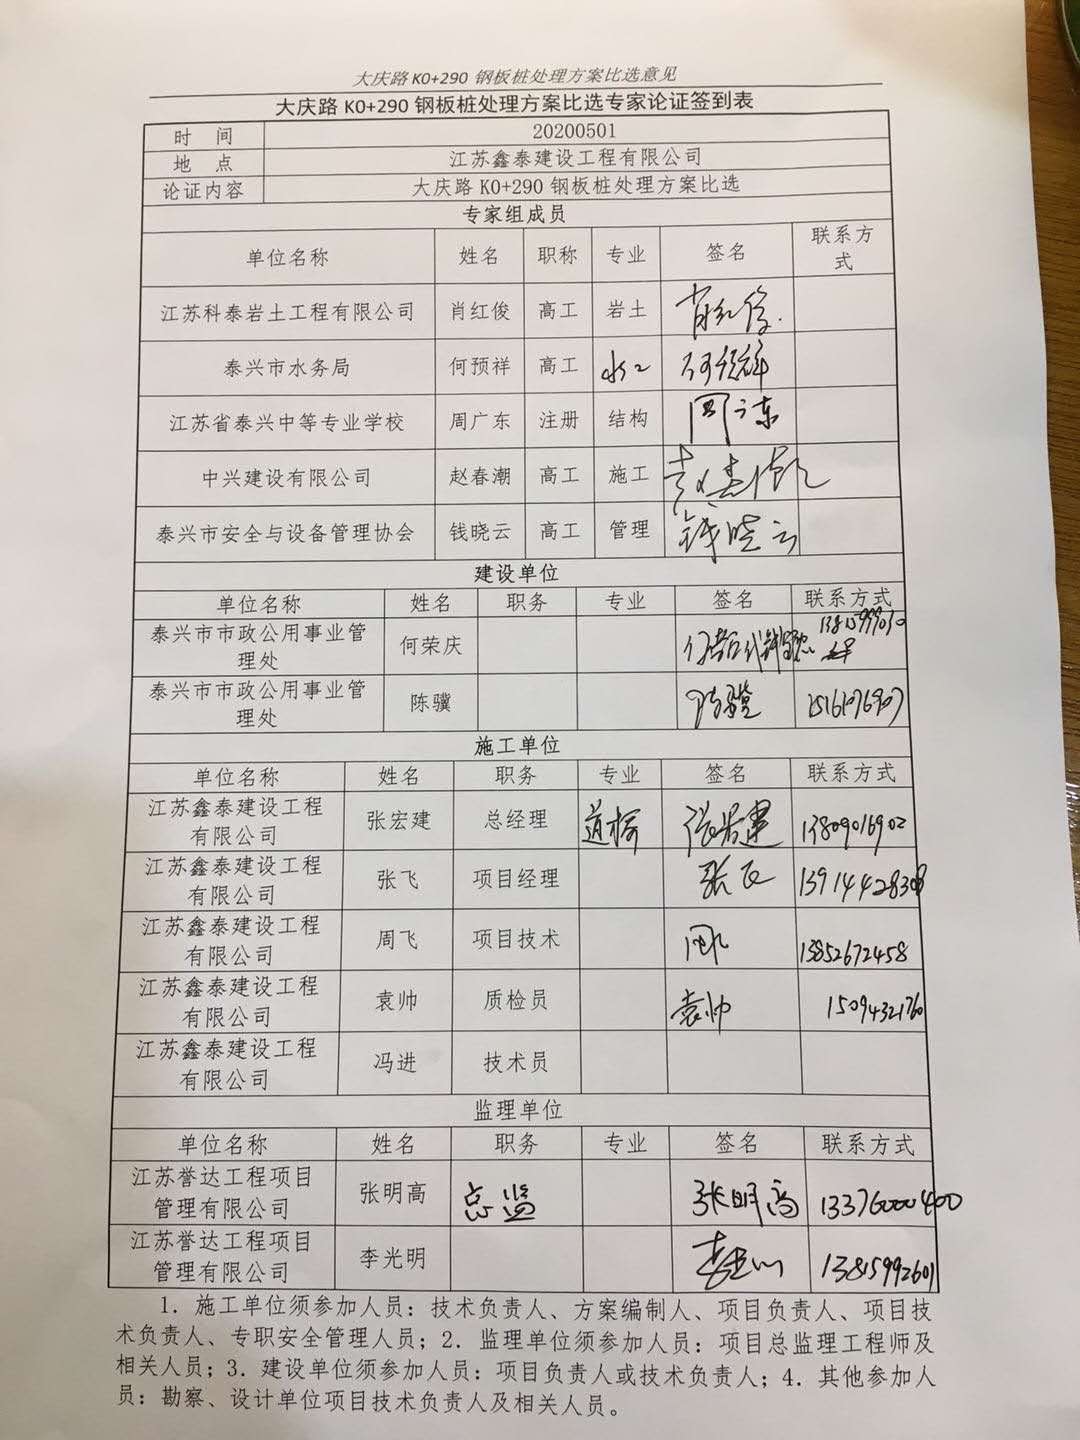 大庆路 K0+290 钢板桩处理方案比选意见
大庆路 K0+290 钢板桩处理方案比选专家论证签到表
时 间 20200501
地 点 江苏鑫泰建设工程有限公司
论证内容 大庆路 K0+290 钢板桩处理方案比选
专家组成员
单位名称 姓名 职称 专业 签名 联系方
式
江苏科泰岩土工程有限公司 肖红俊 高工 岩土 肖红俊
泰兴市水务局 何预祥 高工 水工 何预祥
江苏省泰兴中等专业学校 周广东 注册 结构 周广东
中兴建设有限公司 赵春潮 高工 施工 赵春潮
泰兴市安全与设备管理协会 钱晓云 高工 管理 钱晓云
建设单位
单位名称 姓名 职务 专业 签名 联系方式
泰兴市市政公用事业管
理处 何荣庆
泰兴市市政公用事业管
理处 陈骥 陈骥
施工单位
单位名称 姓名 职务 专业 签名 联系方式
江苏鑫泰建设工程
有限公司 张宏建 总经理 道桥 张宏建 13809016902
江苏鑫泰建设工程
有限公司 张飞 项目经理 张飞
江苏鑫泰建设工程
有限公司 周飞 项目技术 周飞 15852672458
江苏鑫泰建设工程
有限公司 袁帅 质检员 袁帅 15094321760
江苏鑫泰建设工程
有限公司 冯进 技术员
监理单位
单位名称 姓名 职务 专业 签名 联系方式
江苏誉达工程项目
管理有限公司 张明高 总监 张明高 13376000400
江苏誉达工程项目
管理有限公司 李光明 李光明 13815992601
1．施工单位须参加人员：技术负责人、方案编制人、项目负责人、项目技
术负责人、专职安全管理人员；2．监理单位须参加人员：项目总监理工程师及
相关人员；3．建设单位须参加人员：项目负责人或技术负责人；4．其他参加人
员：勘察、设计单位项目技术负责人及相关人员。